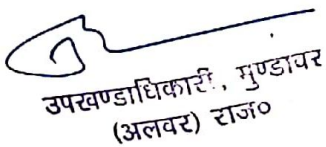 उपखण्डाधिकारी, मुण्डावर
(अलवर) राज०